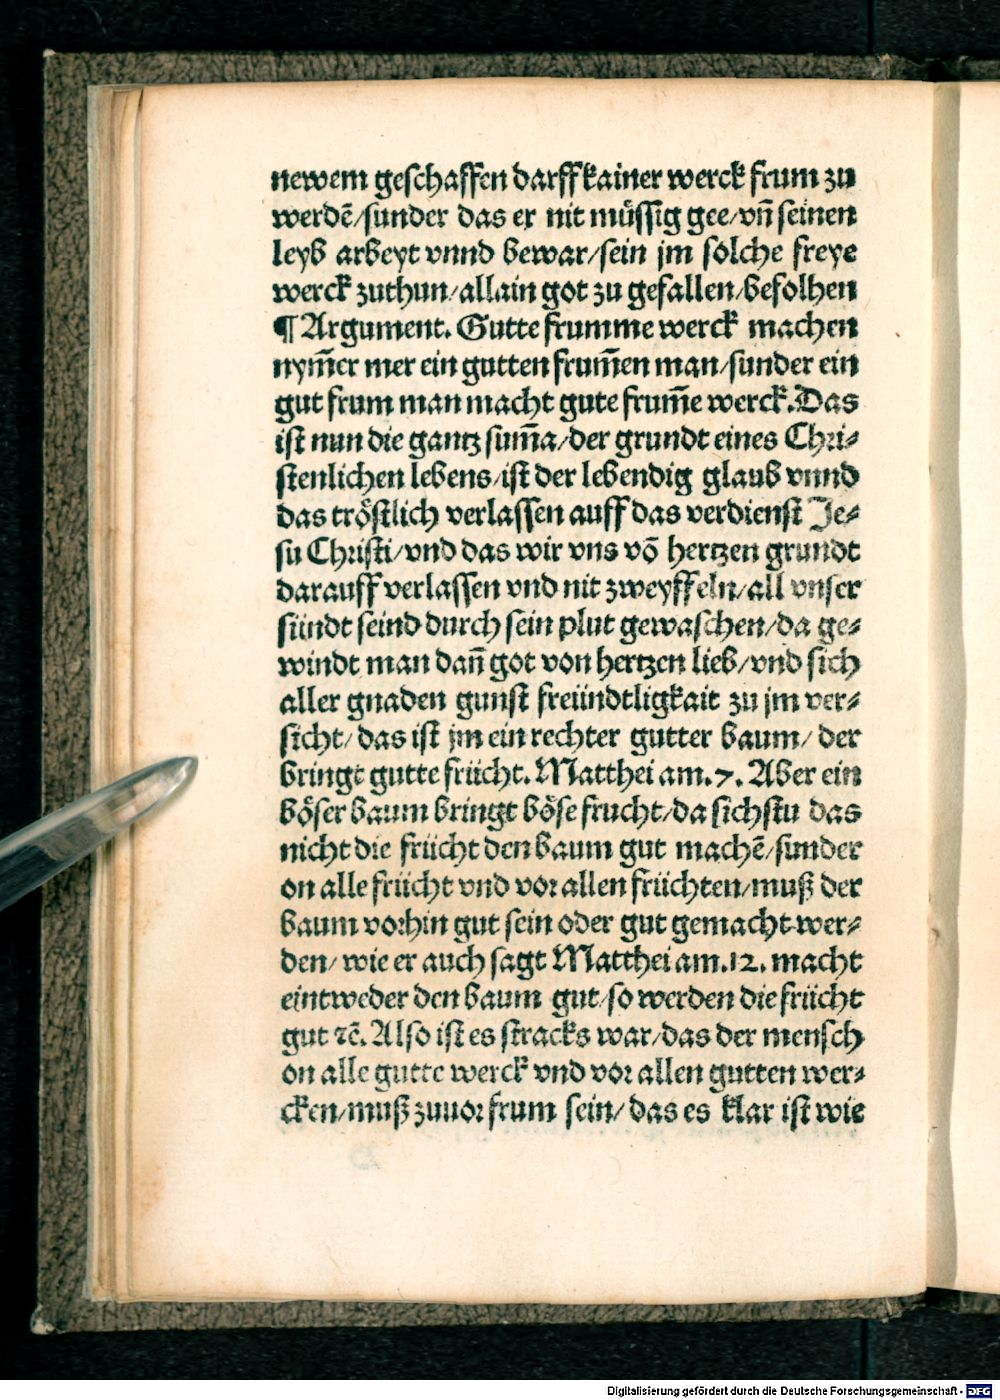 newem geschaffen darff kainer werck frum zu
werdē/sunder das er nit müssig gee/vn̄ seinen
leyb arbeyt vnnd bewar/sein jm solche freye
werck zuthun/allain got zu gefallen/befolhen
¶ Argument. Gutte frumme werck machen
nym̄er mer ein gutten frum̄en man/sunder ein
gut frum man macht gute frum̄e werck. Das
ist nun die gantz sum̄a/der grundt eines Chri-
stenlichen lebens/ist der lebendig glaub vnnd
das tröstlich verlassen auff das verdienst Je-
su Christi/vnd das wir vns vō hertzen grundt
darauff verlassen vnd nit zweyffeln/all vnser
sündt seind durch sein plut gewaschen/da ge-
windt man dan̄ got von hertzen lieb/vnd sich
aller gnaden gunst freündtligkait zu jm ver-
sicht/das ist jm ein rechter gutter baum/der
bringt gutte frücht. Matthei am.7. Aber ein
böser baum bringt böse frucht/da sichstu das
nicht die frücht den baum gut machē/sunder
on alle frücht vnd vor allen früchten/muß der
baum vorhin gut sein oder gut gemacht wer-
den/wie er auch sagt Matthei am.12. macht
eintweder den baum gut/so werden die frücht
gut ⁊c̄. Also ist es stracks war/das der mensch
on alle gutte werck vnd vor allen gutten wer-
cken/muß zuuor frum sein/das es klar ist wie
Digitalisierung gefördert durch die Deutsche Forschungsgemeinschaft - DFG